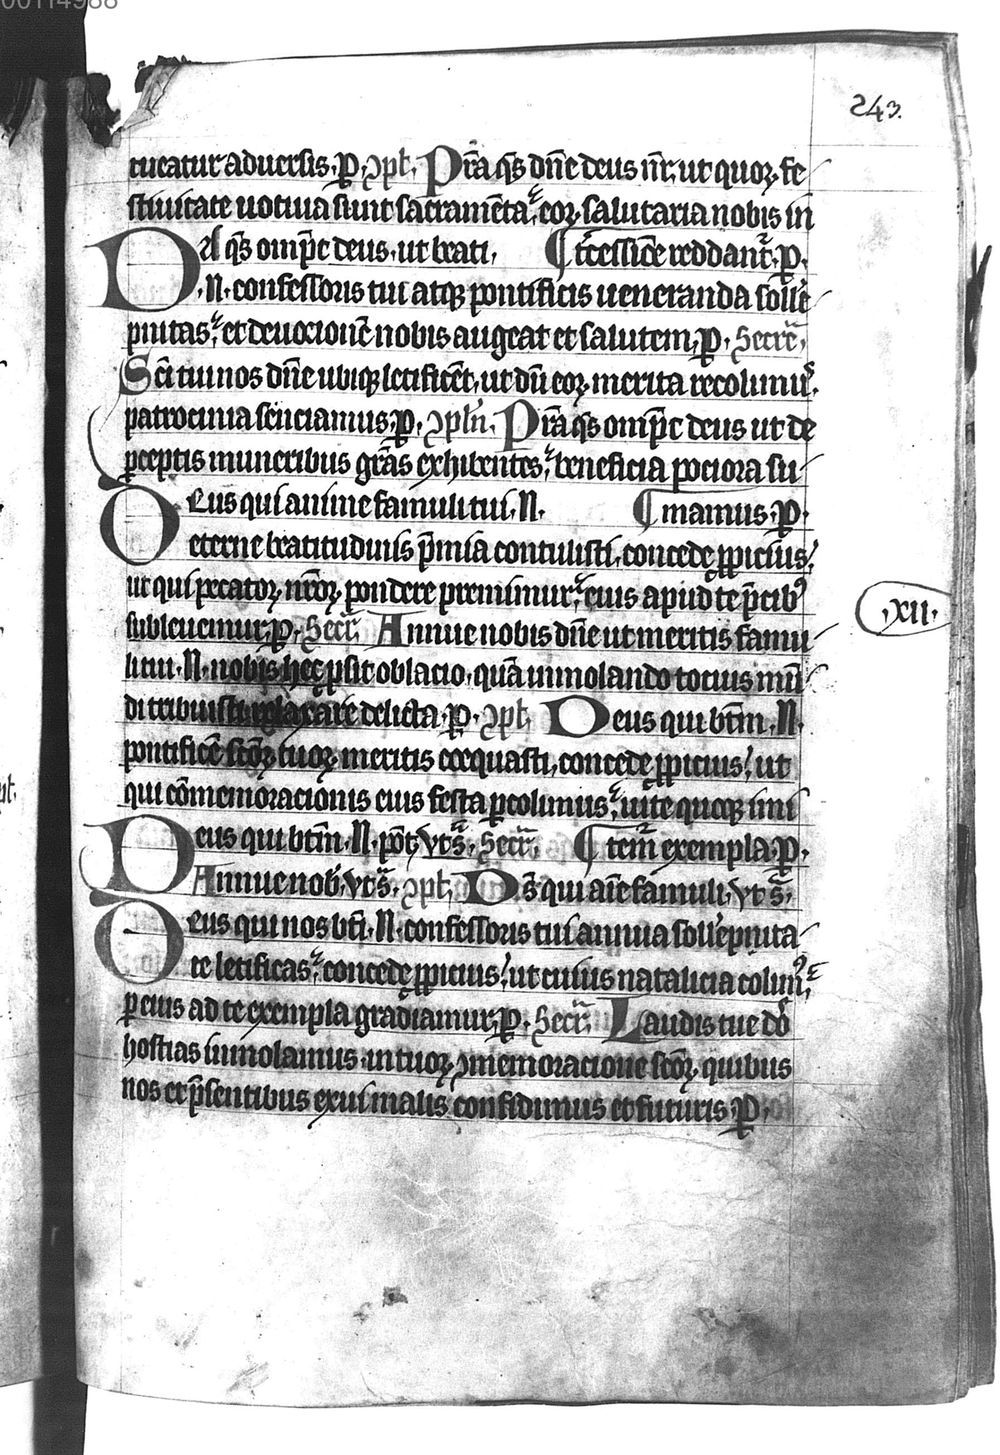 243.
tueatur aduersis. P. ꝯpl. Pͬta q̄s dn̄e deus nr̄, ut quoꝝ fe
stiuitate uotiua sunt sacramēta, eoꝝ salutaria nobis in
Da q̄s omp̄c deus, ut beati, ¶ t̄cessiōe reddant̄. P.
.N. confessoris tui atqꝫ pontificis ueneranda sollē
pnitas, et deuocionē nobis augeat et salutem. P. Secrē.
Sc̄i tui nos dn̄e ubiqꝫ letificēt, ut dū eoꝝ merita recolimꝰ,
patrocinia senciamus. P. ꝯpln̄. Pͬta q̄s omp̄c deus ut de
ꝑceptis muneribus gr̄as exhibentes, beneficia pociora su
Deus qui anime famuli tui .N. ¶ mamus. P.
eterne beatitudinis p̄mia contulisti, concede ꝓpicius,
ut qui pecatoꝝ nr̄oꝝ pondere premimur, eius apud te p̄cibꝰ
subleuemur. P. Secr̄. Annue nobis dn̄e ut meritis famu
li tui .N. nobis hec ꝓsit oblacio, quā immolando tocius mū
di tribuisti relaxare delicta. P. ꝯpl. Deus qui btm̄ .N.
pontificē sc̄oꝝ tuoꝝ meritis coequasti, concede ꝓpicius, ut
qui cōmemoracionis eius festa ꝑcolimus, uite quoqꝫ imi
Deus qui btm̄ .N. pōt, vt s̄. Secr̄. ¶ tem̄ exempla. P.
Annue nob̄, vt s̄. ꝯpl. Ds̄ qui aīe famuli, vt s̄.
Deus qui nos bt̄i .N. confessoris tui annua sollēpnita
te letificas, concede ꝓpicius, ut cuius natalicia colimꝰ,
ꝑ eius ad te exempla gradiamur. P. Secr̄. Laudis tue dō
hostias immolamus in tuoꝝ ꝯmemoracione sc̄oꝝ, quibus
nos et p̄sentibus exui malis confidimus et futuris. P.
.xii.